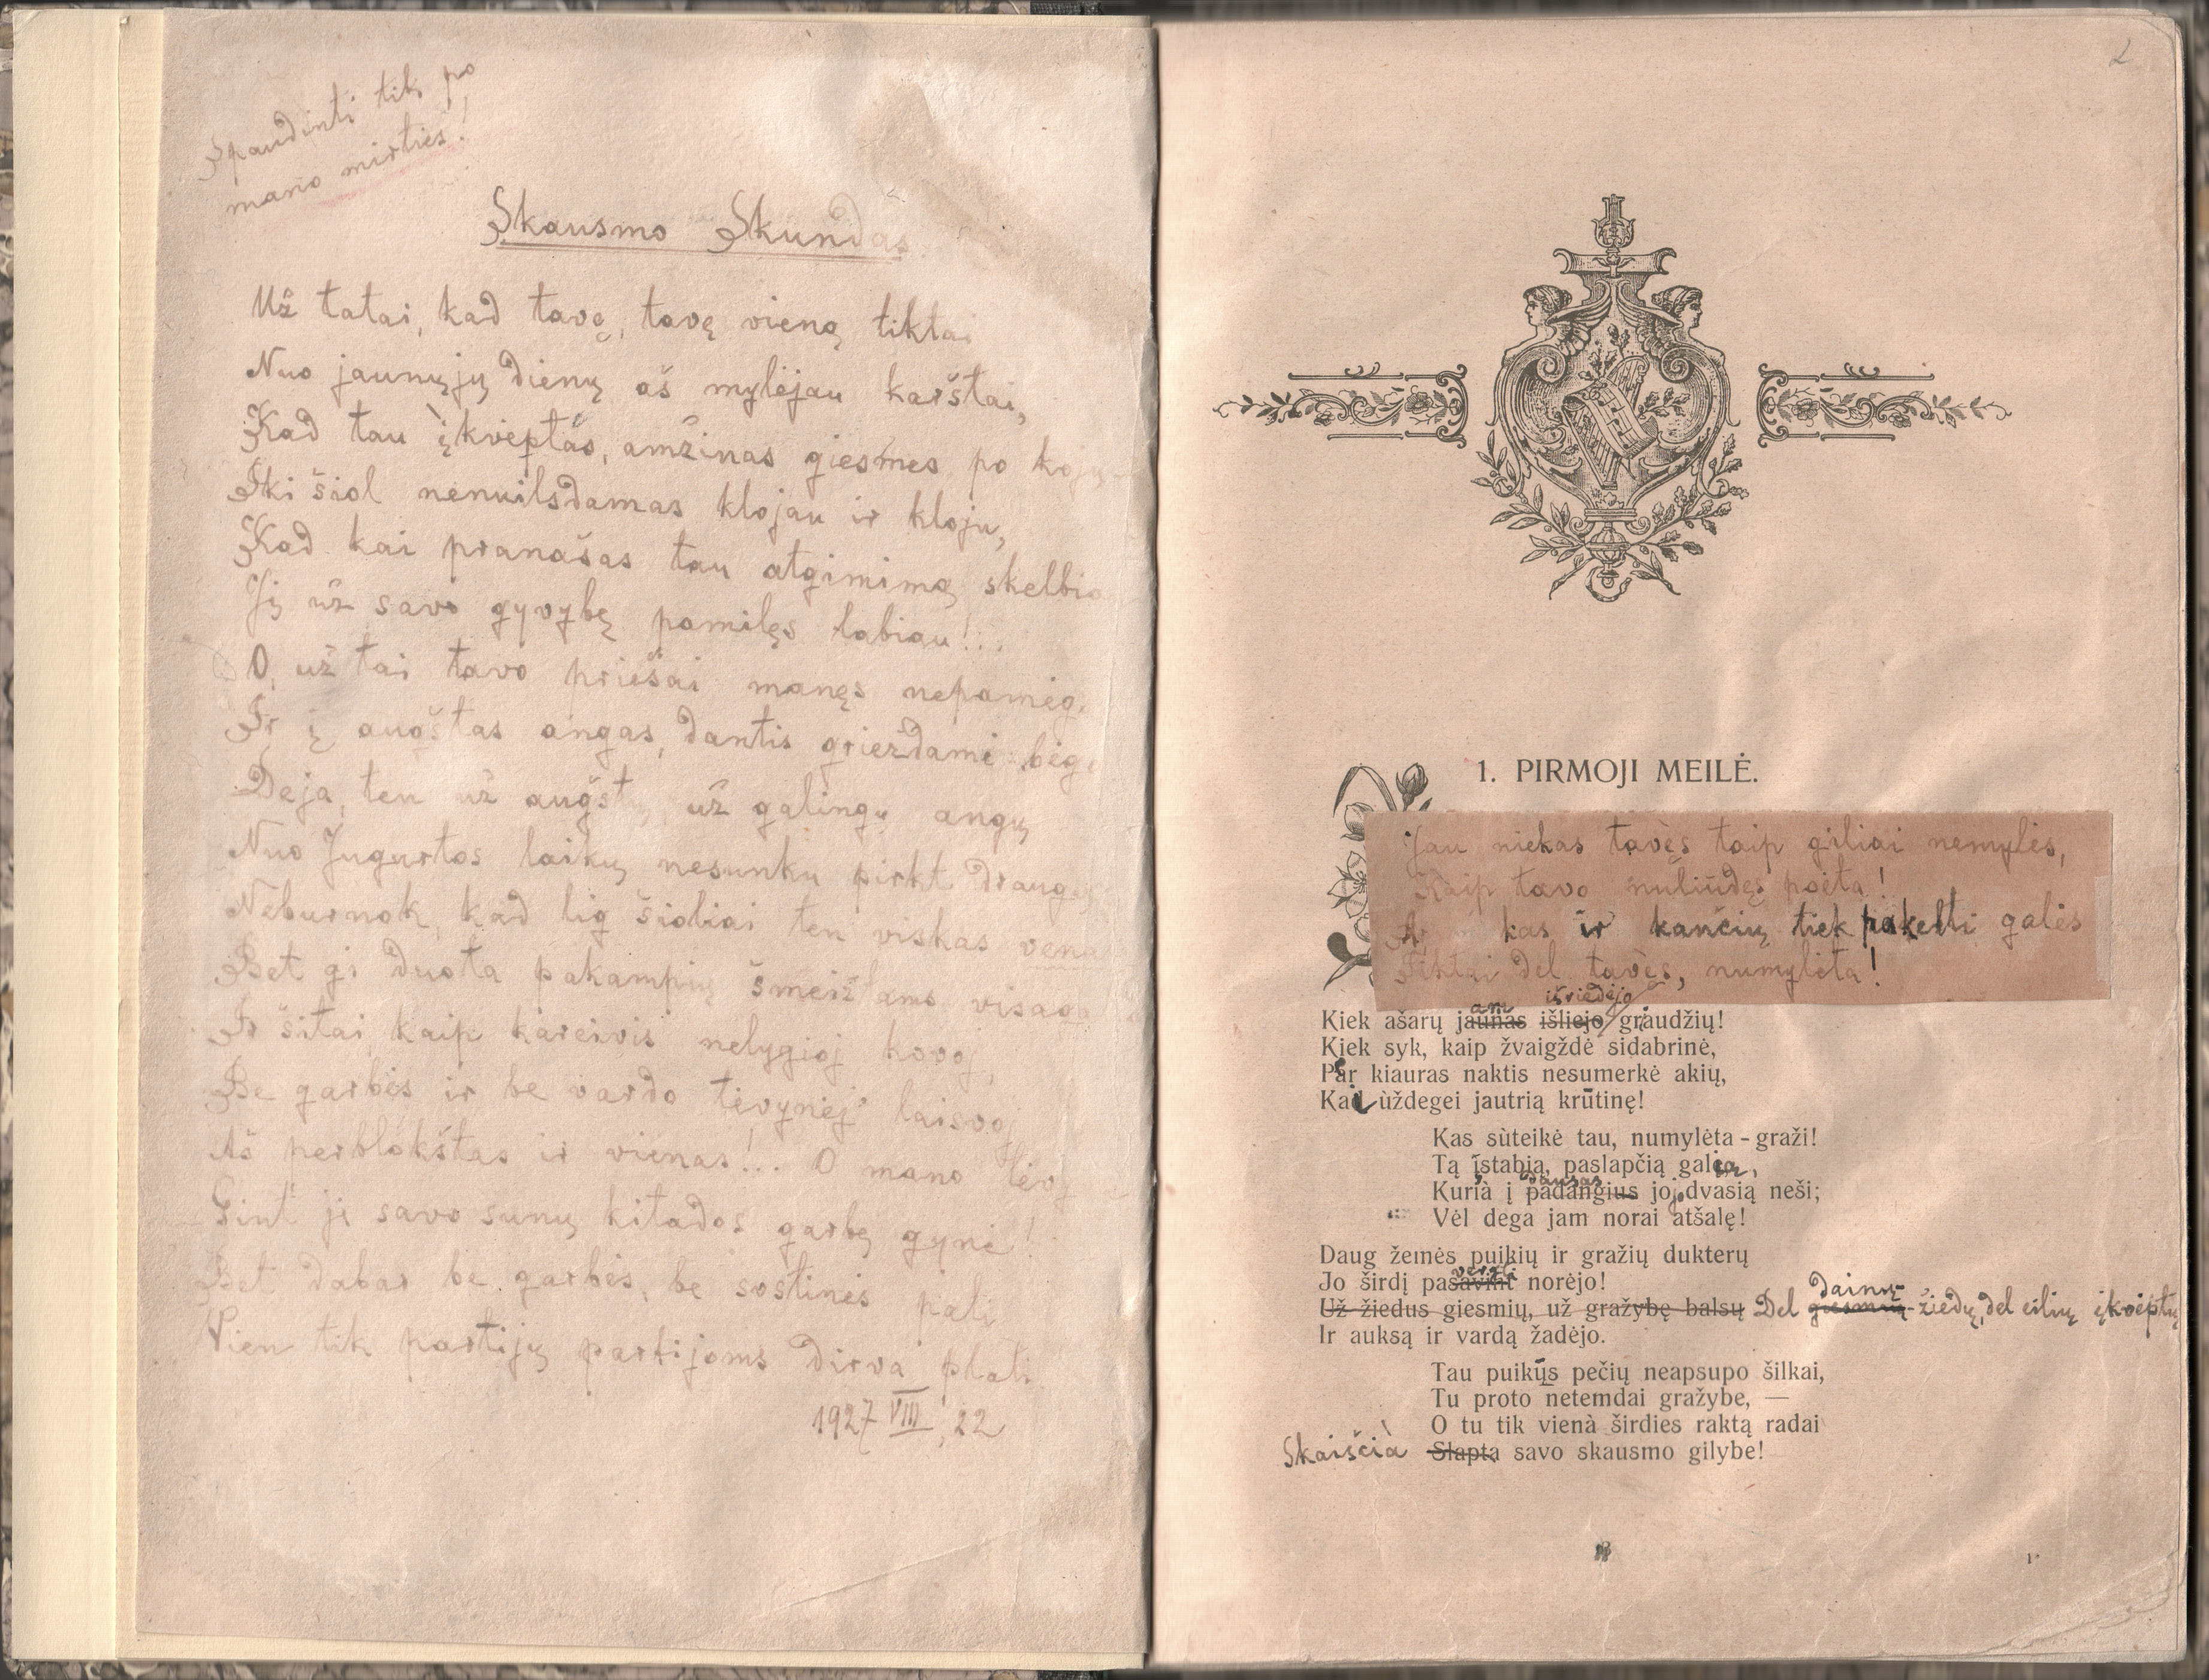 Spaudinti tik po
mano mirties!
Skausmo Skundas
Už tatai, kad tavę, tavę vieną tiktai
Nuo jaunųjų dienų aš mylėjau karštai,
Kad tau įkvėptas, amžinas giesmes po kojų
Iki šiol nenuilsdamas klojau ir kloju,
Kad kai pranašas tau atgimimą skelbiau
Jį už savo gyvybę pamilęs labiau!...
O, už tai tavo priešai manęs nepamėgo
Ir į augštas angas, dantis grieždami bėgo
Deja, ten už augštų, už galingų angų
Nuo Jugurtos laikų nesunku pirkt draugų
Neburnok, kad lig šioliai ten viskas
Bet gi duota pakampių šmeižtams
Ir šitai kaip kareivis nelygioj kovoj,
Be garbės ir be vardo tėvynėj laisvoj
Aš perblokštas ir vienas!... O mano
Gint ji savo sunų kitados garbę gynė!
Bet dabar be garbės, be sostinės pati
Vien tik partijų partijoms dirva plati
1927 VIII, 22
2
1. PIRMOJI MEILĖ.
Jau niekas tavęs taip giliai nemylės,
Kaip tavo nuliūdęs poėta!
Ar kas ir kančių tiek pakelti galės
Tiktai dėl tavęs, numylėta!
am išriedėjo
Kiek ašarų jaunas išliejo graudžių!
Kiek syk, kaip žvaigždė sidabrinė,
Per kiauras naktis nesumerkė akių,
Kad ùždegei jautrią krūtinę!
Kas sùteikė tau, numylėta-graži!
Tą įstabią, paslapčią galią,
dausas
Kurià į padangius jojo dvasią neši;
Vėl dega jam norai atšalę!
Daug žemės puikių ir gražių dukterų
vergti
Jo širdį pasavint norėjo!
dainų
Už žiedus giesmių, už gražybę balsų Del giesmių žiedų, del eilių įkvėptų
Ir auksą ir vardą žadėjo.
Tau puikųs pečių neapsupo šilkai,
Tu proto netemdai gražybe, —
O tu tik vienà širdies raktą radai
Skaiščià Slapta savo skausmo gilybe!